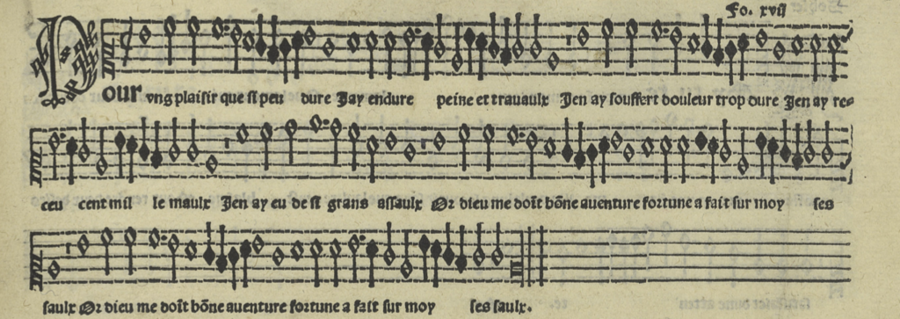 Fo. xvij
Pour vng plaisir que si peu dure Jay endure peine et trauaulx Jen ay souffert douleur trop dure Jen ay re-
ceu cent mil le maulx Jen ay eu de si grans assaulx Or dieu me doit bõne auenture fortune a fait sur moy ses
saulx Or dieu me doit bõne auenture fortune a fait sur moy ses saulx.